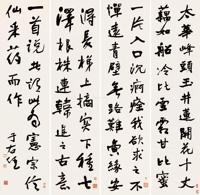 太華峰頭玉井蓮開花十丈
藕如船冷比雪霜甘比蜜
一片入口沉痾痊我欲求之不
憚遠青壁無路難夤緣安
得長梯上摘實下種七
澤根株連韓退之古意
一首說此詩為憲宗信
仙采藥而作
于右任